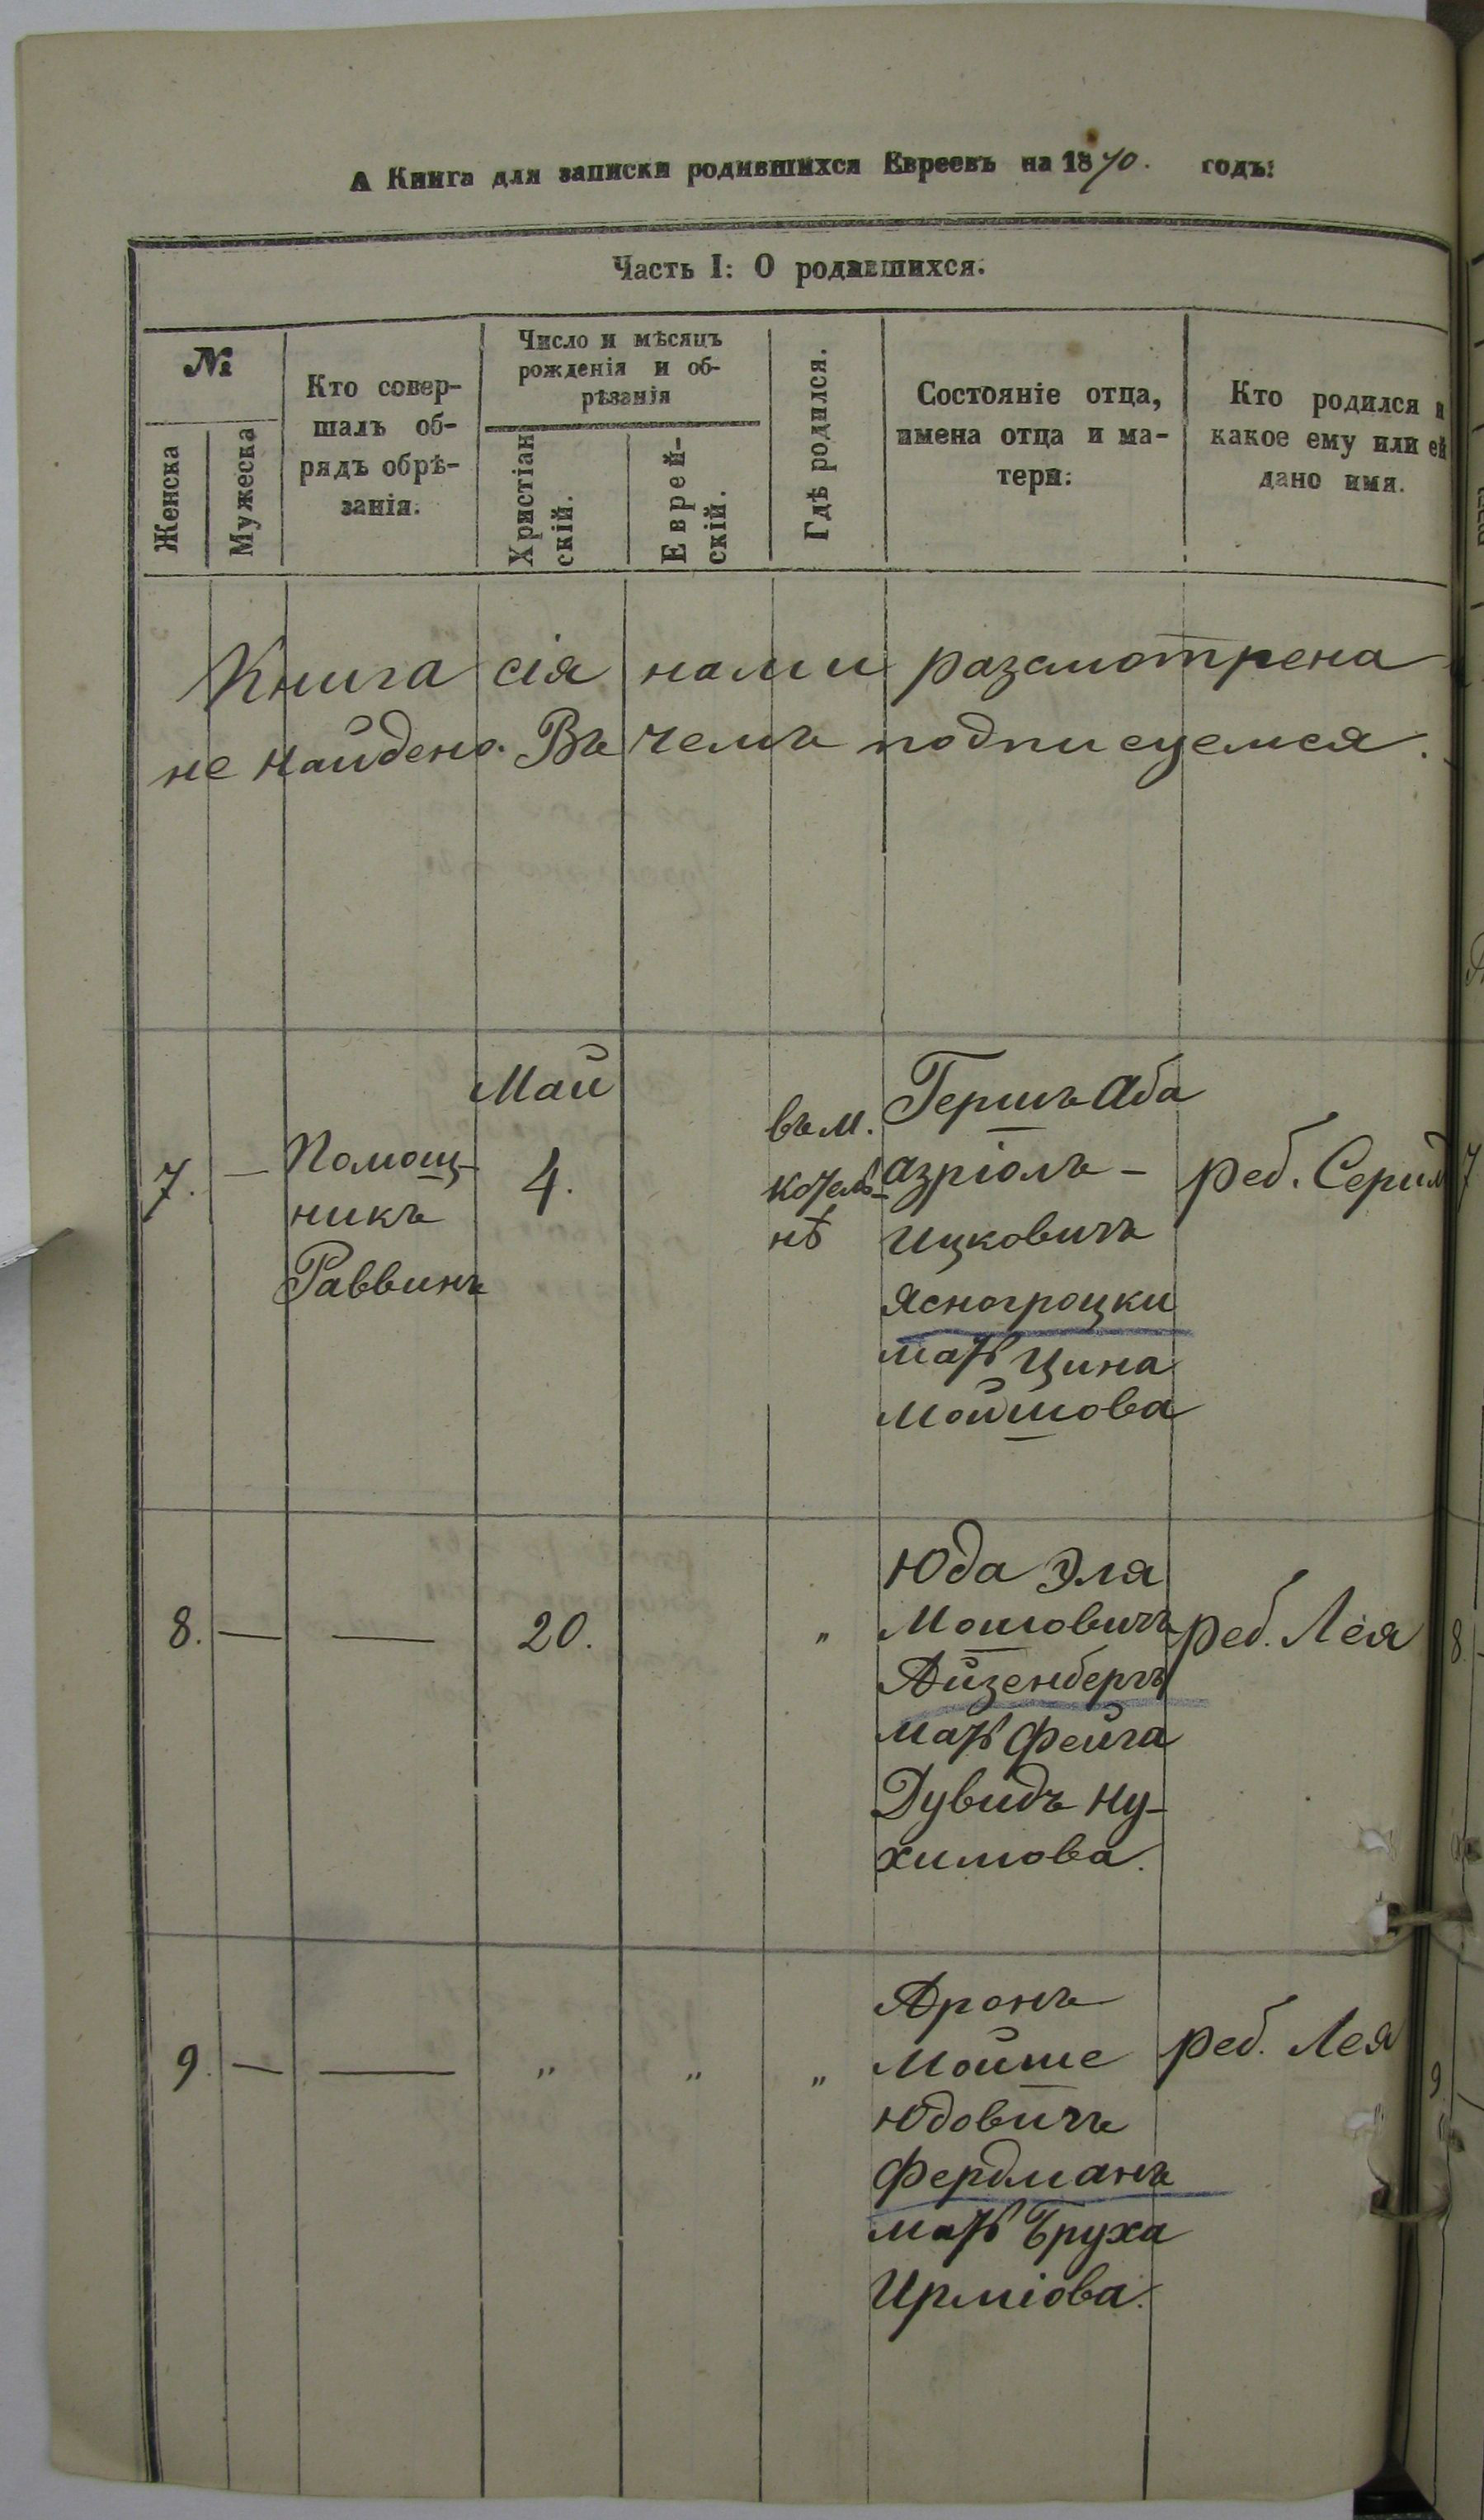 А Книга для записки родившихся Евреевъ на 1870. годъ:
Часть I: О родившихся.
№
Женска
Мужеска
Кто совер-
шалъ об-
рядъ обрѣ-
занія.
Число и мѣсяцъ
рожденія и об-
рѣзанія
Христіан
скій.
Еврей-
скій.
Гдѣ родился.
Состояніе отца,
имена отца и ма-
тери.
Кто родился и
какое ему или ей
дано имя.
Книга сія нами разсмотрена
не найдено. Въ чемъ подписуемся.
7. —
Помощ-
никъ
Раввинъ
Май
4.
въ м.
котель-
нѣ
Гершъ Аба
Азріолъ -
Ицковичъ
Ясногроцки
мать Цина
Мойшова
реб.
8. — — 20. "
Юда Эля
Мошовичъ
Айзенбергъ
мать Фейга
Дувидъ Ну-
химова.
реб. Лея
9. — — " " "
Аронъ
Мойше
Юдовичъ
Фердманъ
мать Бруха
Ирміова.
реб. Лея